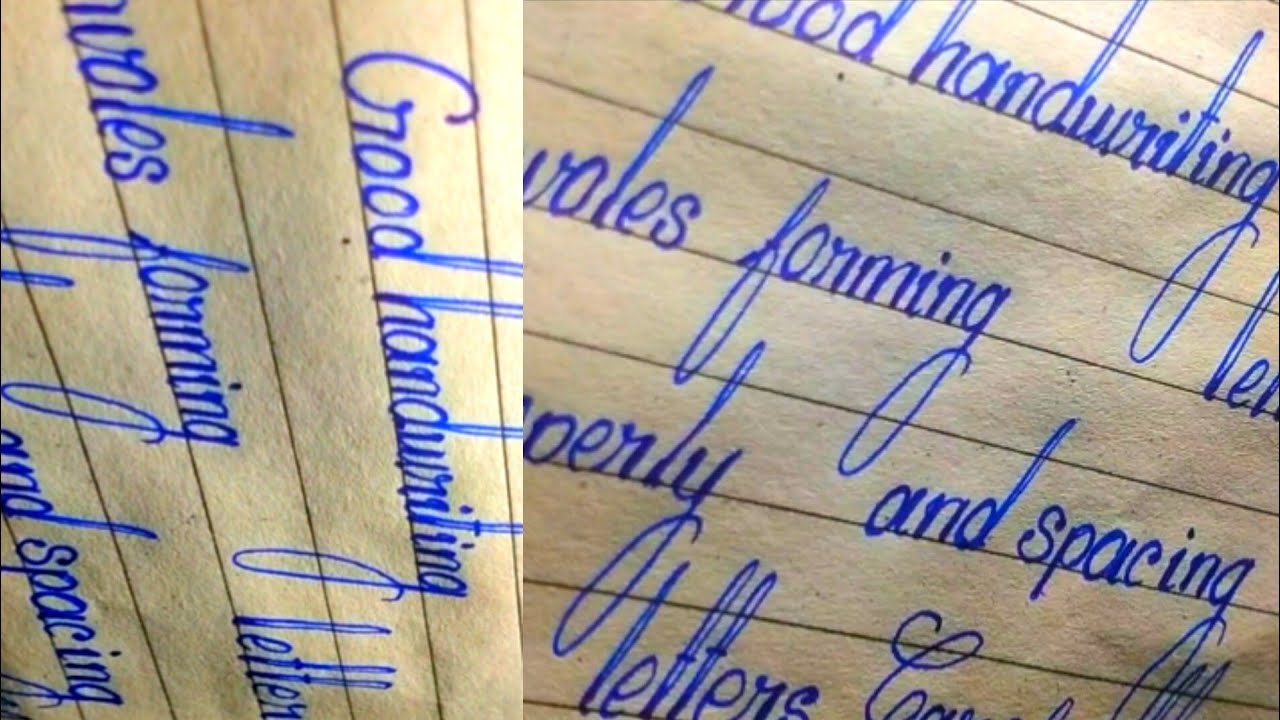 Good handwriting
nvoles forming letter
and spacing
ood handwriting
voles forming let
perly and spacing
letters